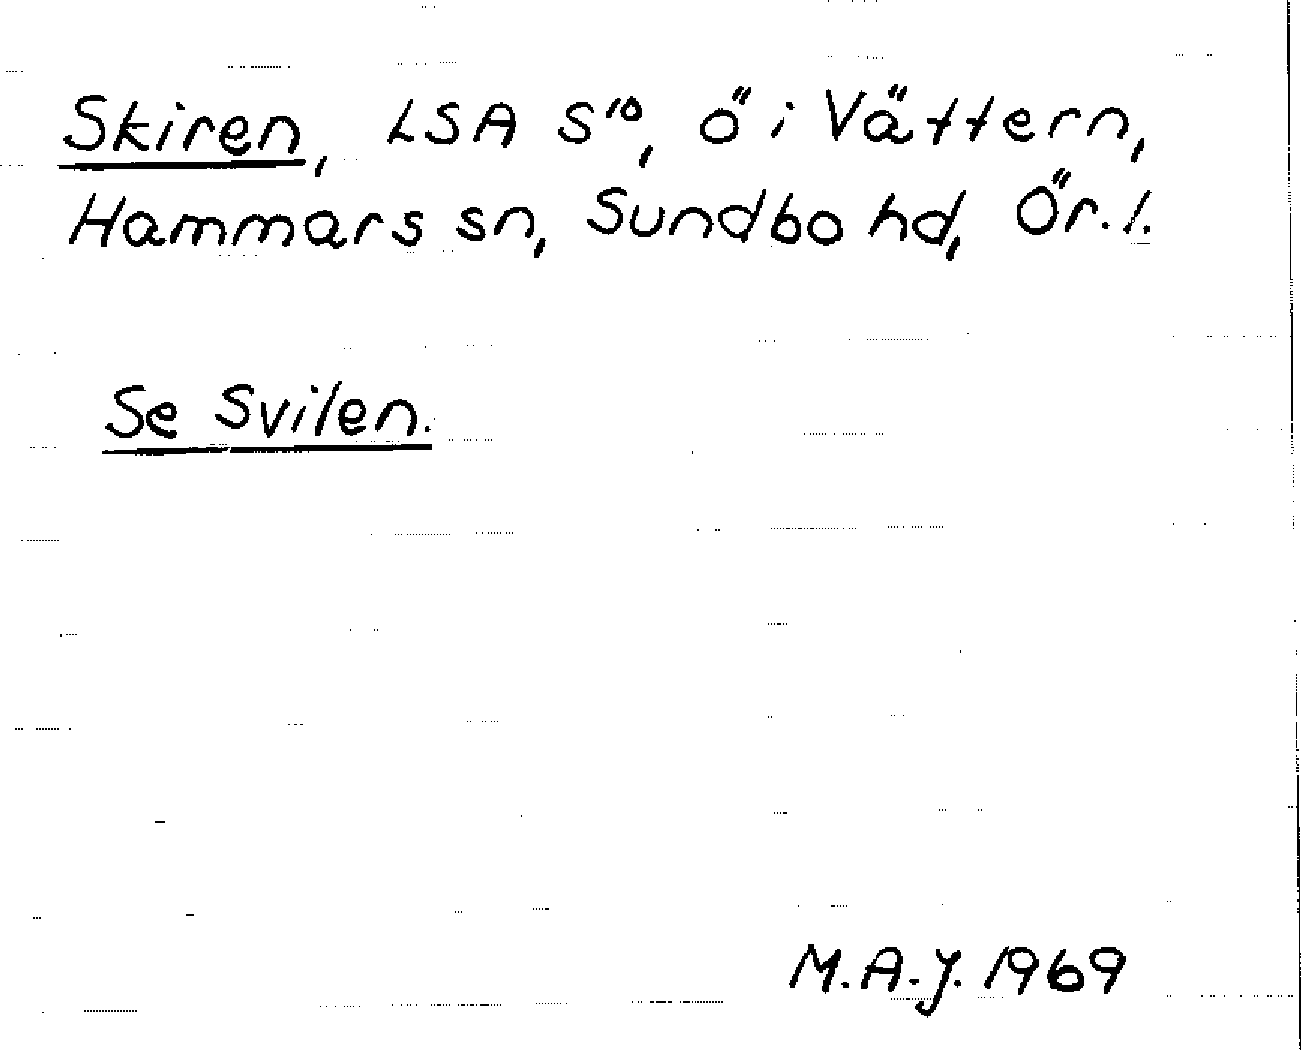 Skiren, LSA S¹⁰, ö i Vättern,
Hammars sn, Sundbo hd, Ör. l.
Se Svilen.
M.A.J. 1969